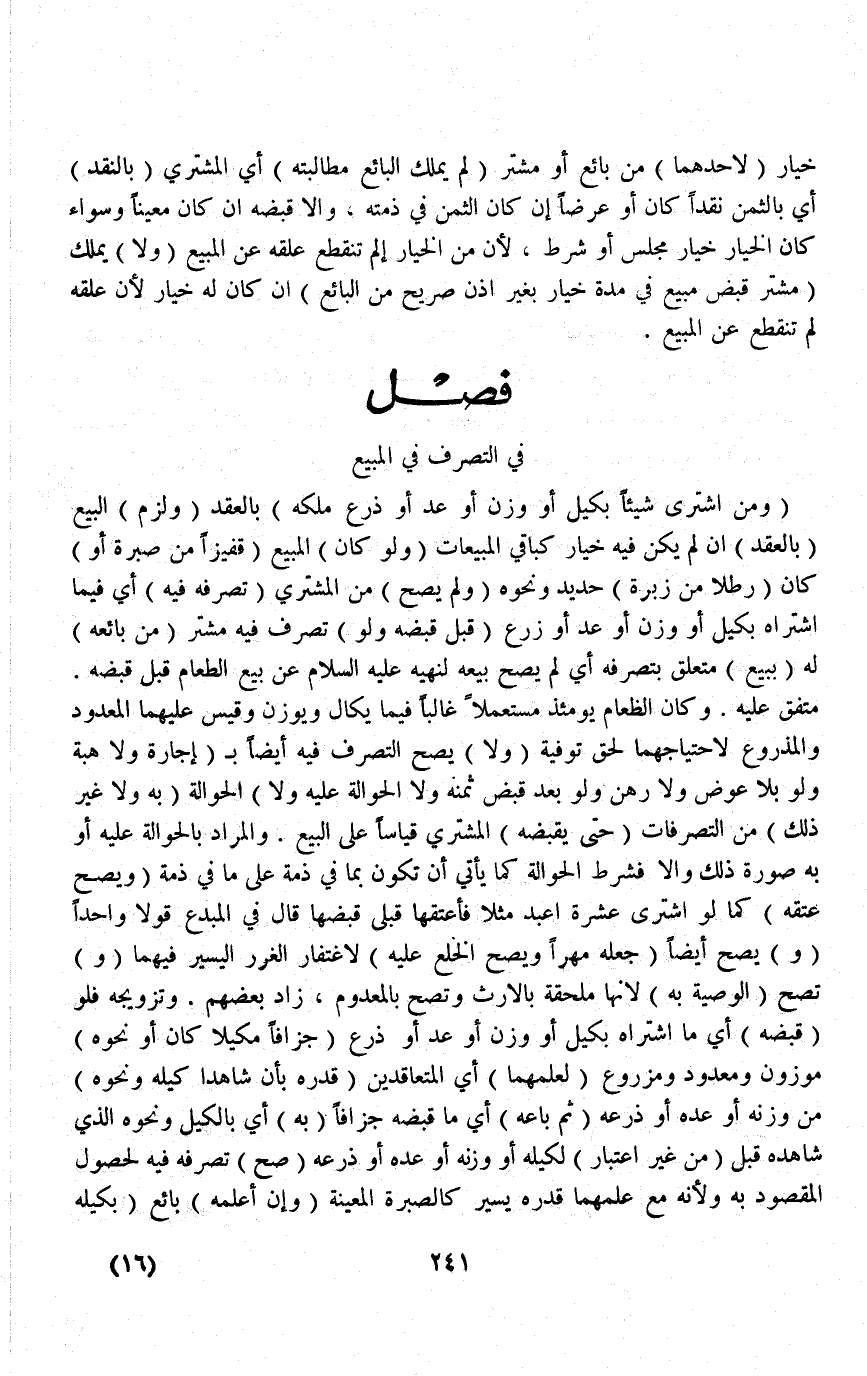 خيار ( لاحدهما ) من بائع أو مشتر ( لم يملك البائع مطالبته ) أي المشتري ( بالنقد )
أي بالثمن نقداً كان أو عرضاً إن كان الثمن في ذمته ، والا قبضه ان كان معيناً وسواء
كان الخيار خيار مجلس أو شرط ، لأن من الخيار إلم تنقطع علقه عن المبيع ( ولا ) يملك
( مشتر قبض مبيع في مدة خيار بغير اذن صريح من البائع ) ان كان له خيار لأن علقه
لم تنقطع عن المبيع .
فصل
في التصرف في المبيع
( ومن اشترى شيئاً بكيل أو وزن أو عد أو ذرع ملكه ) بالعقد ( ولزم ) البيع
( بالعقد ) ان لم يكن فيه خيار كباقي المبيعات ( ولو كان ) المبيع ( قفيزاً من صبرة أو )
كان ( رطلا من زبرة ) حديد ونحوه ( ولم يصح ) من المشتري ( تصرفه فيه ) أي فيما
اشتراه بكيل أو وزن أو عد أو زرع ( قبل قبضه ولو ) تصرف فيه مشتر ( من بائعه )
له ( ببيع ) متعلق بتصرفه أي لم يصح بيعه لنهيه عليه السلام عن بيع الطعام قبل قبضه .
متفق عليه . وكان الظعام يومئذ مستعملاً غالباً فيما يكال ويوزن وقيس عليهما المعدود
والمذروع لاحتياجهما لحق توفية ( ولا ) يصح التصرف فيه أيضاً بـ ( إجارة ولا هبة
ولو بلا عوض ولا رهن ولو بعد قبض ثمنه ولا الحوالة عليه ولا ) الحوالة ( به ولا غير
ذلك ) من التصرفات ( حتى يقبضه ) المشتري قياساً على البيع . والمراد بالحوالة عليه أو
به صورة ذلك والا فشرط الحوالة كما يأتي أن تكون بما في ذمة على ما في ذمة ( ويصح
عتقه ) كما لو اشترى عشرة اعبد مثلا فأعتقها قبلى قبضها قال في المبدع قولا واحداً
( و ) يصح أيضاً ( جعله مهراً ويصح الخلع عليه ) لاغتفار الغرر اليسير فيهما ( و )
تصح ( الوصية به ) لانها ملحقة بالارث وتصح بالمعدوم ، زاد بعضهم . وتزويجه فلو
( قبضه ) أي ما اشتراه بكيل أو وزن أو عد أو ذرع ( جزافاً مكيلا كان أو نحوه )
موزون ومعدود ومزروع ( لعلمهما ) أي المتعاقدين ( قدره بأن شاهدا كيله ونحوه )
من وزنه أو عده أو ذرعه ( ثم باعه ) أي ما قبضه جزافاً ( به ) أي بالكيل ونحوه الذي
شاهده قبل ( من غير اعتبار ) لكيله أو وزنه أو عده أو ذرعه ( صح ) تصرفه فيه لحصول
المقصود به ولأنه مع علمهما قدره يسير كالصبرة المعينة ( وإن أعلمه ) بائع ( بكيله
٢٤١
(١٦)